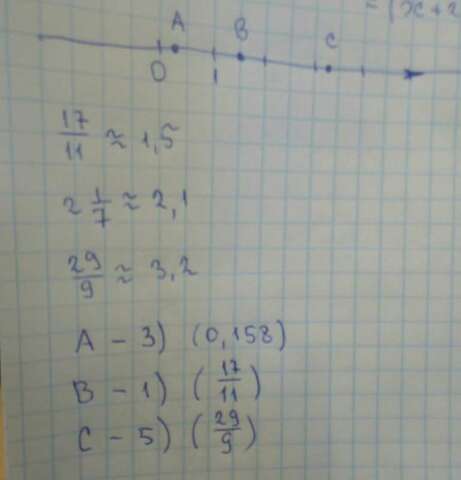 = (x+2
A B C
0 1
17/11 ≈ 1,5
2 1/7 ≈ 2,1
29/9 ≈ 3,2
A – 3) (0,158)
B – 1) (17/11)
C – 5) (29/9)